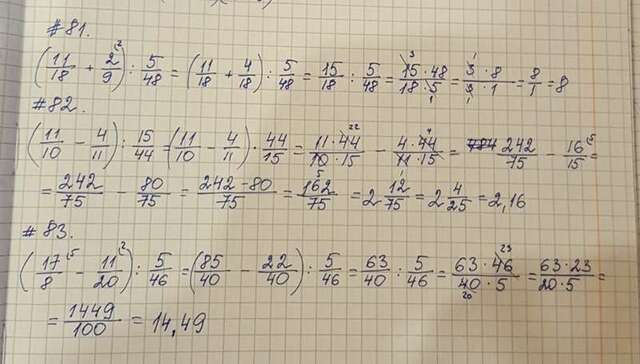 #81.
(11/18 + 2/9 ²) : 5/48 = (11/18 + 4/18) : 5/48 = 15/18 : 5/48 = 15·48/18·5 = 3·8/3·1 = 8/1 = 8
#82.
(11/10 − 4/11) : 15/44 = (11/10 − 4/11) · 44/15 = 11·44/10·15 − 4·44/11·15 = 242/75 − 16/15 =
= 242/75 − 80/75 = 242−80/75 = 162/75 = 2 12/75 = 2 4/25 = 2,16
#83.
(17/8 ⁵ − 11/20 ²) : 5/46 = (85/40 − 22/40) : 5/46 = 63/40 : 5/46 = 63·46/40·5 = 63·23/20·5 =
= 1449/100 = 14,49